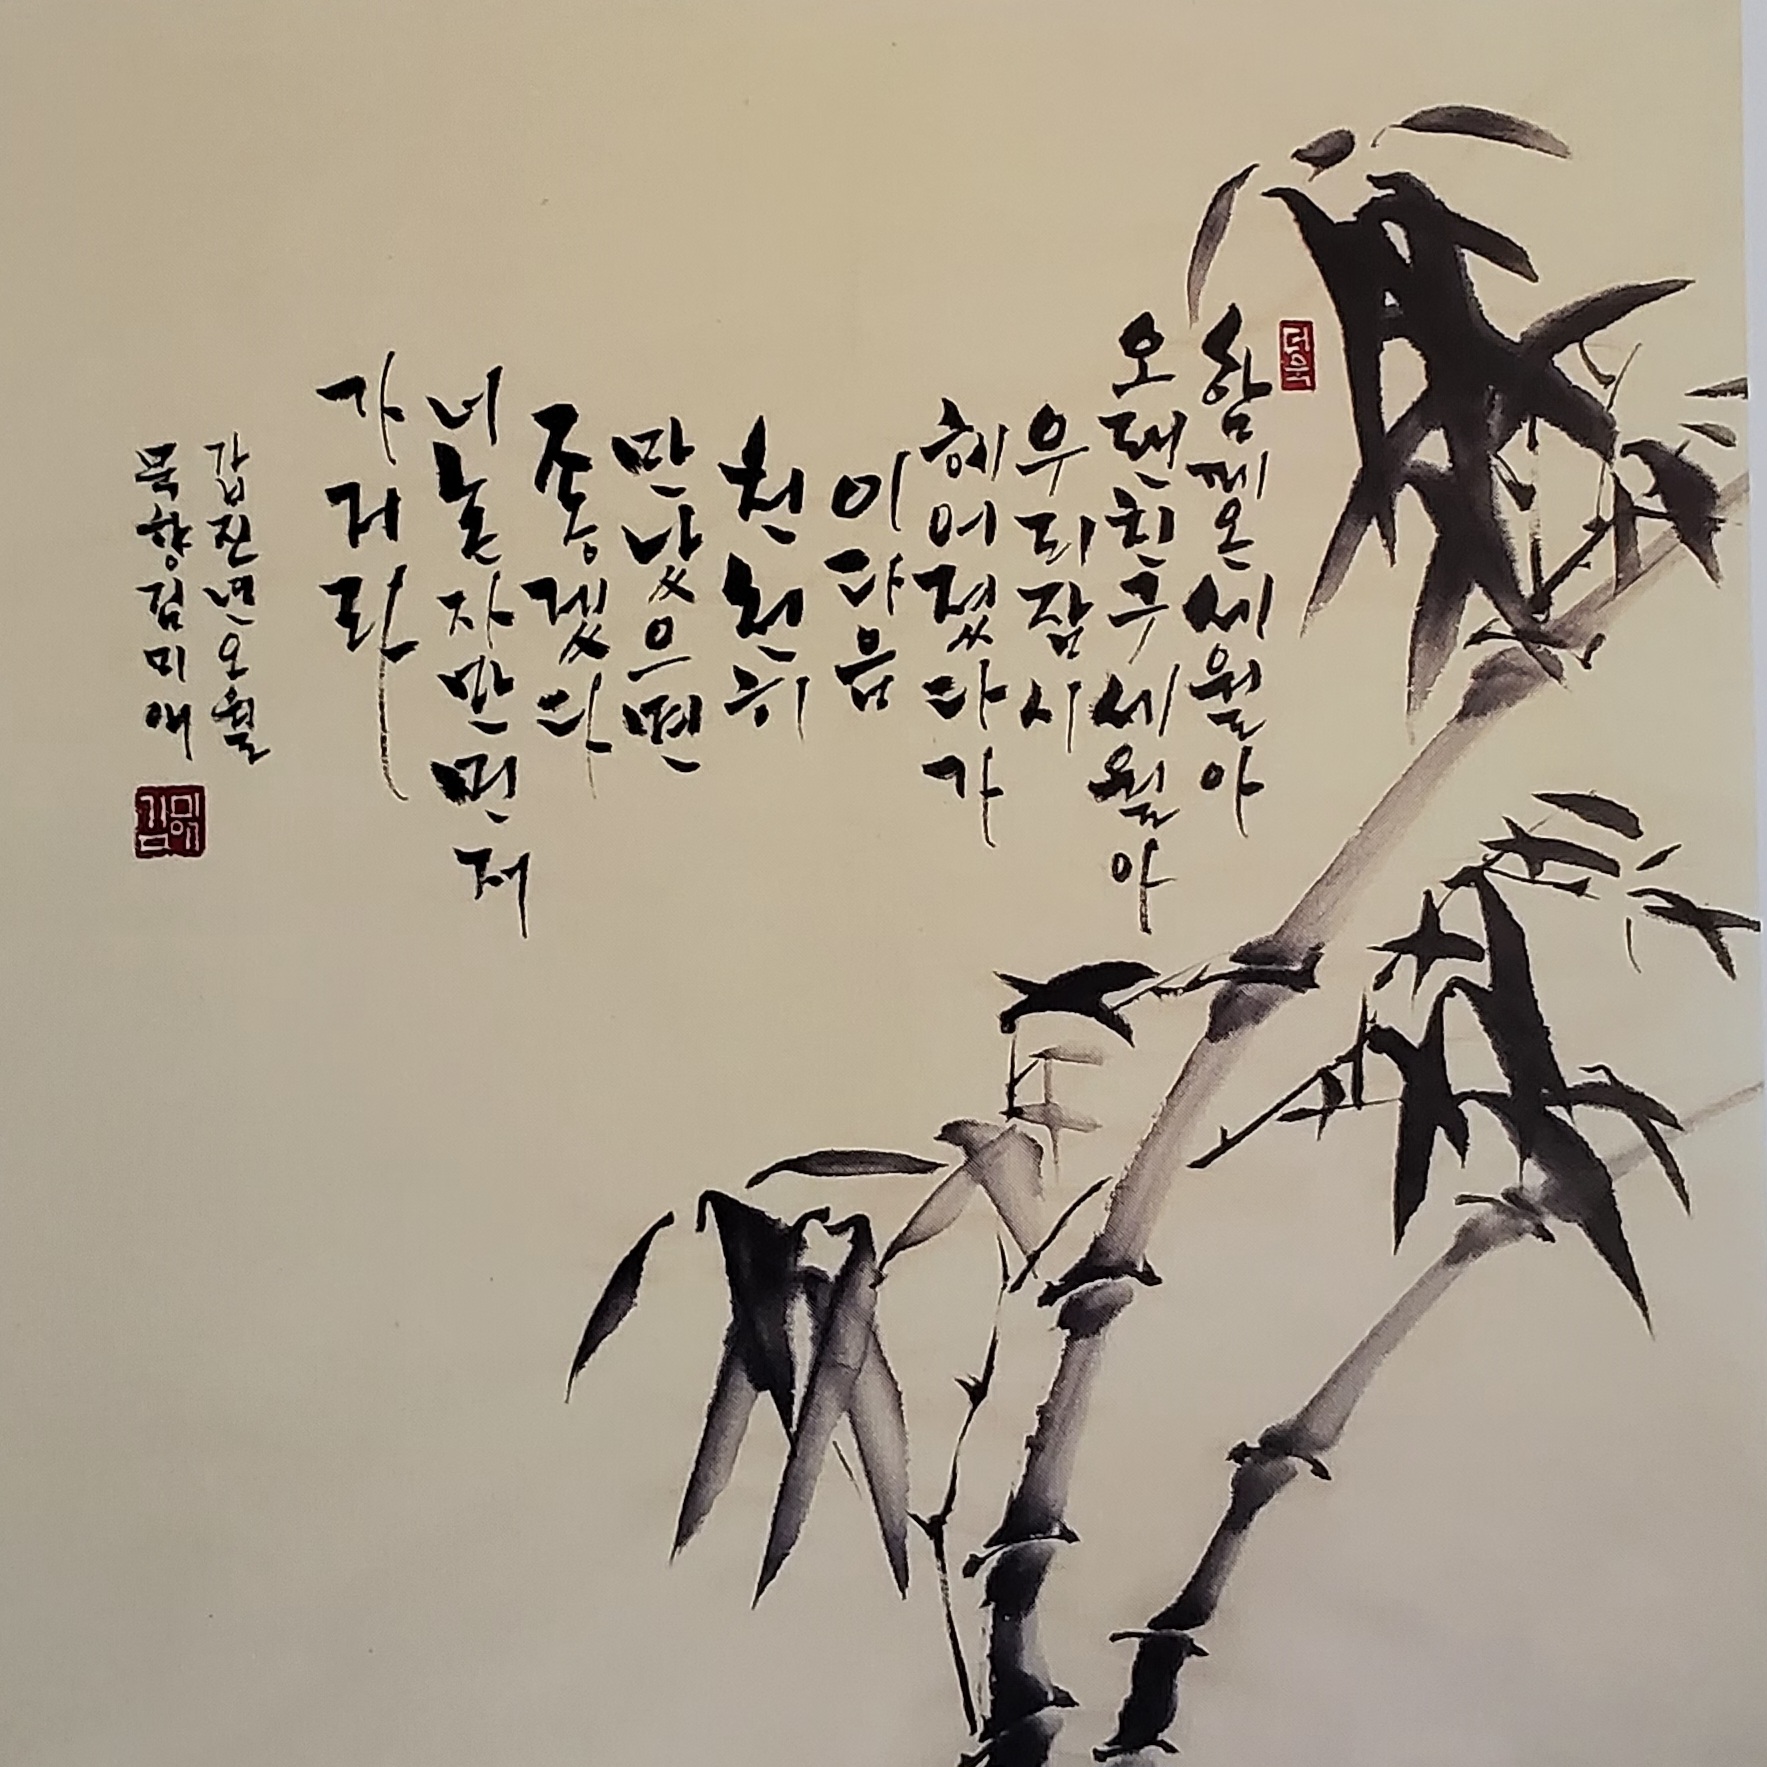 함께온세월아
오랜친구세월아
우리잠시
헤어졌다가
이다음
천천히
만났으면
좋겠다
너혼자만먼저
가거라
갑진년오월
묵향김미애
김미애